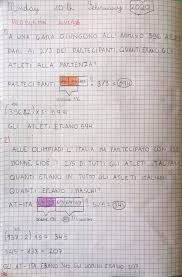 Monday 10th February 2020
PROBLEMI
1)
A UNA GARA GIUNGONO ALL'ARRIVO 396 ATLETI
PARI AI 2/3 DEI PARTECIPANTI. QUANTI ERANO GLI
ATLETI ALLA PARTENZA?
PARTECIPANTI = 3/3 =
GLI ATLETI ERANO 594
2)
ALLE OLIMPIADI L'ITALIA HA PARTECIPATO CON
DONNE CIOÈ I 2/5 DI TUTTI GLI ATLETI ITALIANI.
QUANTI ERANO IN TUTTO GLI ATLETI ITALIANI?
QUANTI ERANO I MASCHI?
AT-ITA 5/5 = 345
= 345
345 - 138 = 207
GLI AT-ITA ERANO 345 GLI UOMINI ERANO 207